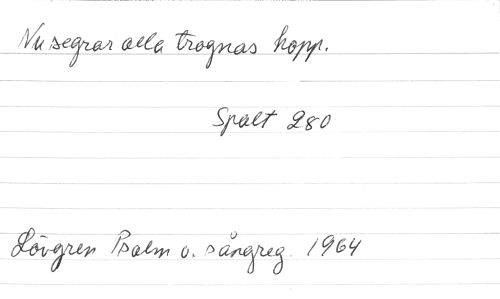 Nu segrar alla trognas hopp.
Spalt 280
Lövgren Psalm o. sångreg. 1964